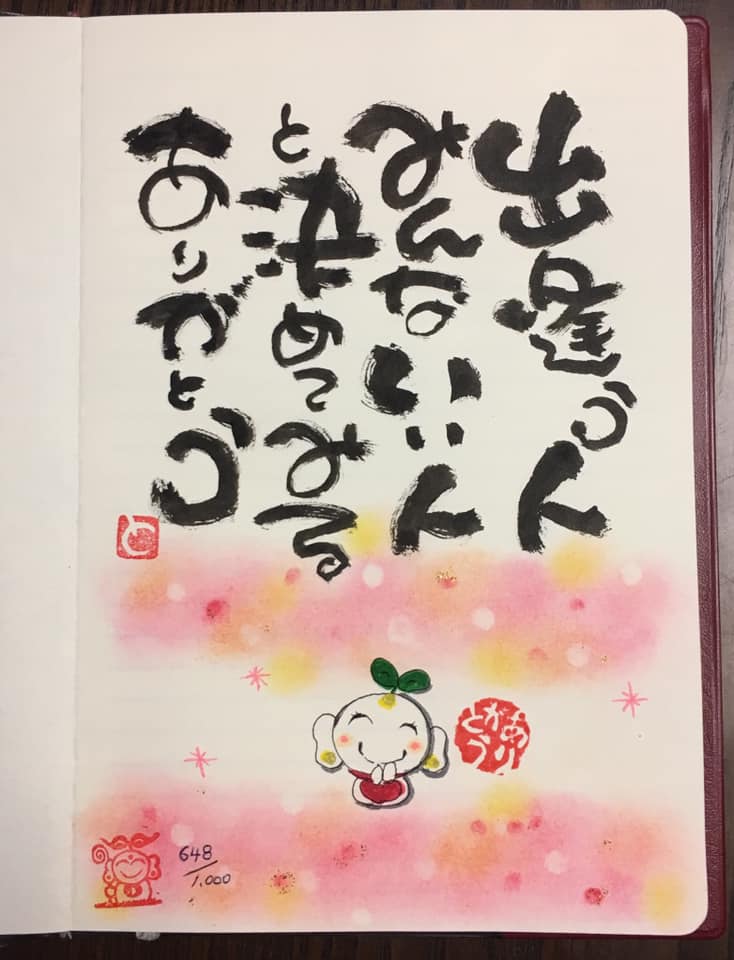 出逢う人
みんないい人
と決めてみる
ありがとう
と
ありがとう
648/1,000